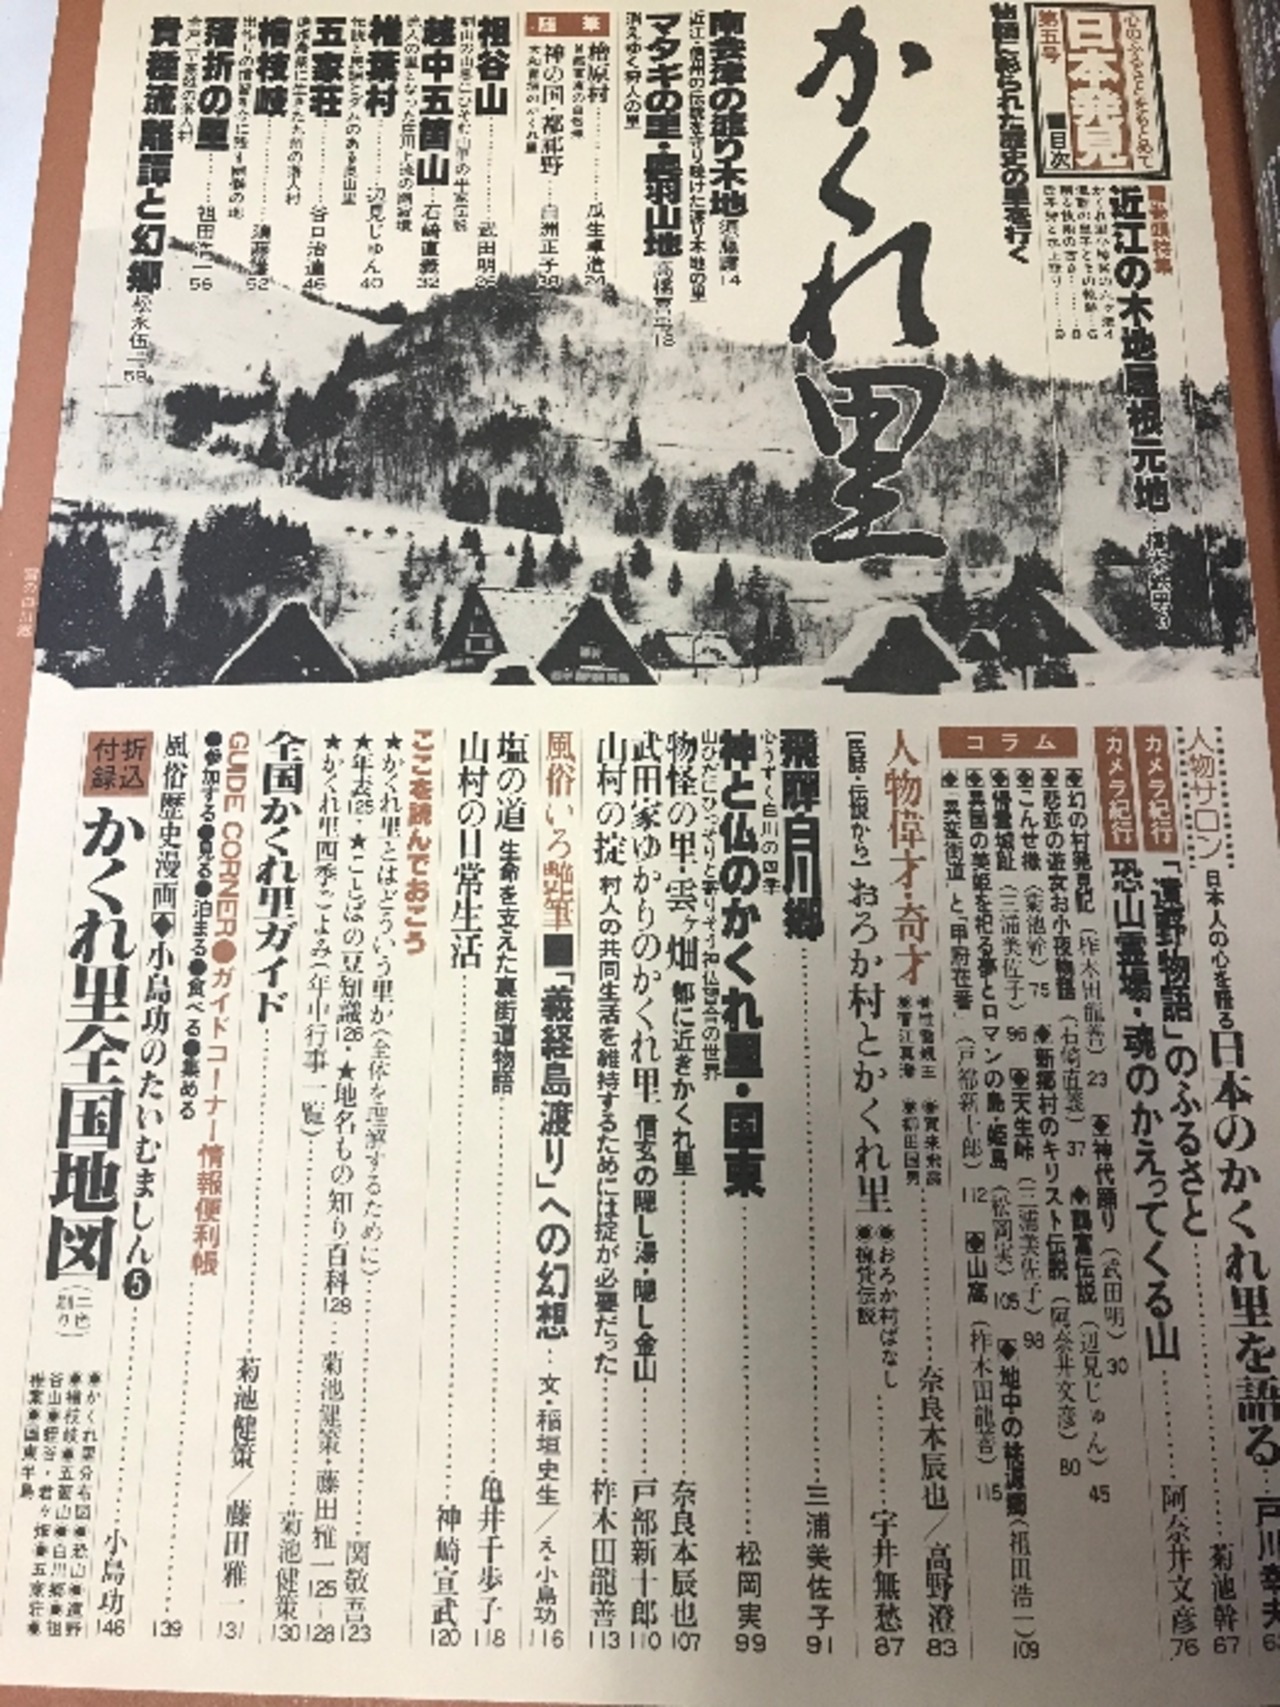 心のふるさとをもとめて
日本発見
第五号
目次
かくれ里
巻頭特集
近江の木地屋根元地
南会津の渡り木地
須藤護 14
マタギの里・奥羽山地
消えゆく狩人の里
18
随筆
檜原村……瓜生卓造 24
神の国・都祁野……白洲正子 38
祖谷山……武田明 26
越中五箇山……石崎直義 32
椎葉村……辺見じゅん 40
五家荘……谷口治達 46
檜枝岐……須藤護 52
落折の里……祖田浩一 56
貴種流離譚と幻郷
松永伍一 59
雪の白川郷
人物サロン
日本人の心を語る
日本のかくれ里を語る
戸川幸夫
菊池幹 67
カメラ紀行
「遠野物語」のふるさと
カメラ紀行
恐山霊場・魂のかえってくる山
阿奈井文彦 76
コラム
◆幻の村発見記(柞木田龍善)23
◆神代踊り(武田明)30
◆悲恋の遊女お小夜物語(石崎直義)37
◆鶴富伝説(辺見じゅん)45
◆こんせ様(菊池幹)75
◆新郷村のキリスト伝説(阿奈井文彦)80
◆帰雲城趾(三浦美佐子)96
◆天生峠(三浦美佐子)98
◆異国の美姫を祀る夢とロマンの島・姫島(松岡実)105
◆地中の桃源郷(祖田浩一)109
◆「異変街道」と「甲府在番」(戸部新十郎)112
◆山窩(柞木田龍善)115
人物偉才・奇才
●菅江真澄
●柳田国男
奈良本辰也/高野澄 83
[民話・伝説から]おろか村とかくれ里
●おろか村ばなし
●椀貸伝説
宇井無愁 87
飛騨白川郷
心うずく白川の四季
三浦美佐子 91
神と仏のかくれ里・国東
山ひだにひっそりと寄りそう神仏習合の世界
松岡実 99
物怪の里・雲ヶ畑 都に近きかくれ里……奈良本辰也 107
武田家ゆかりのかくれ里 信玄の隠し湯・隠し金山……戸部新十郎 110
山村の掟 村人の共同生活を維持するためには掟が必要だった……柞木田龍善 113
風俗いろ艶筆■「義経島渡り」への幻想…文・稲垣史生/え・小島功 116
塩の道 生命を支えた裏街道物語……亀井千歩子 118
山村の日常生活……神崎宣武 120
ここを読んでおこう
★かくれ里とはどういう里か(全体を理解するために)……関敬吾 123
★年表125・★ことばの豆知識126・★地名もの知り百科128…菊池健策・藤田雅一 125–128
★かくれ里四季ごよみ(年中行事一覧)……菊池健策 130
全国かくれ里ガイド……菊池健策/藤田雅一 131
GUIDE CORNER●ガイドコーナー情報便利帳
●参加する●見る●泊まる●食べる●集める
139
風俗歴史漫画◆小島功のたいむましん❺……小島功 146
折込付録
かくれ里全国地図
(二色刷り)
●かくれ里分布図●恐山●遠野
●檜枝岐●五箇山●白川郷●祖
谷山●蛭谷・君ヶ畑●五家荘●
椎葉●国東半島